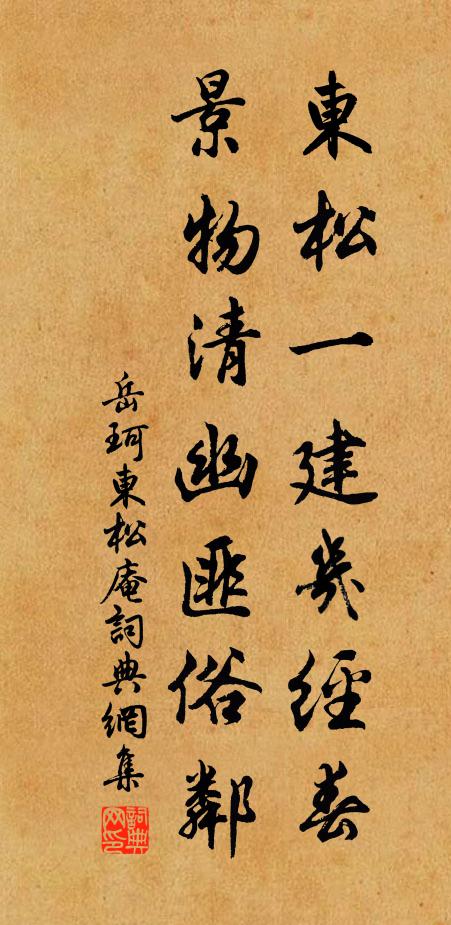 東松一建幾經春
景物清幽匪俗鄰
岳珂東松庵詞典網集
詞典网印